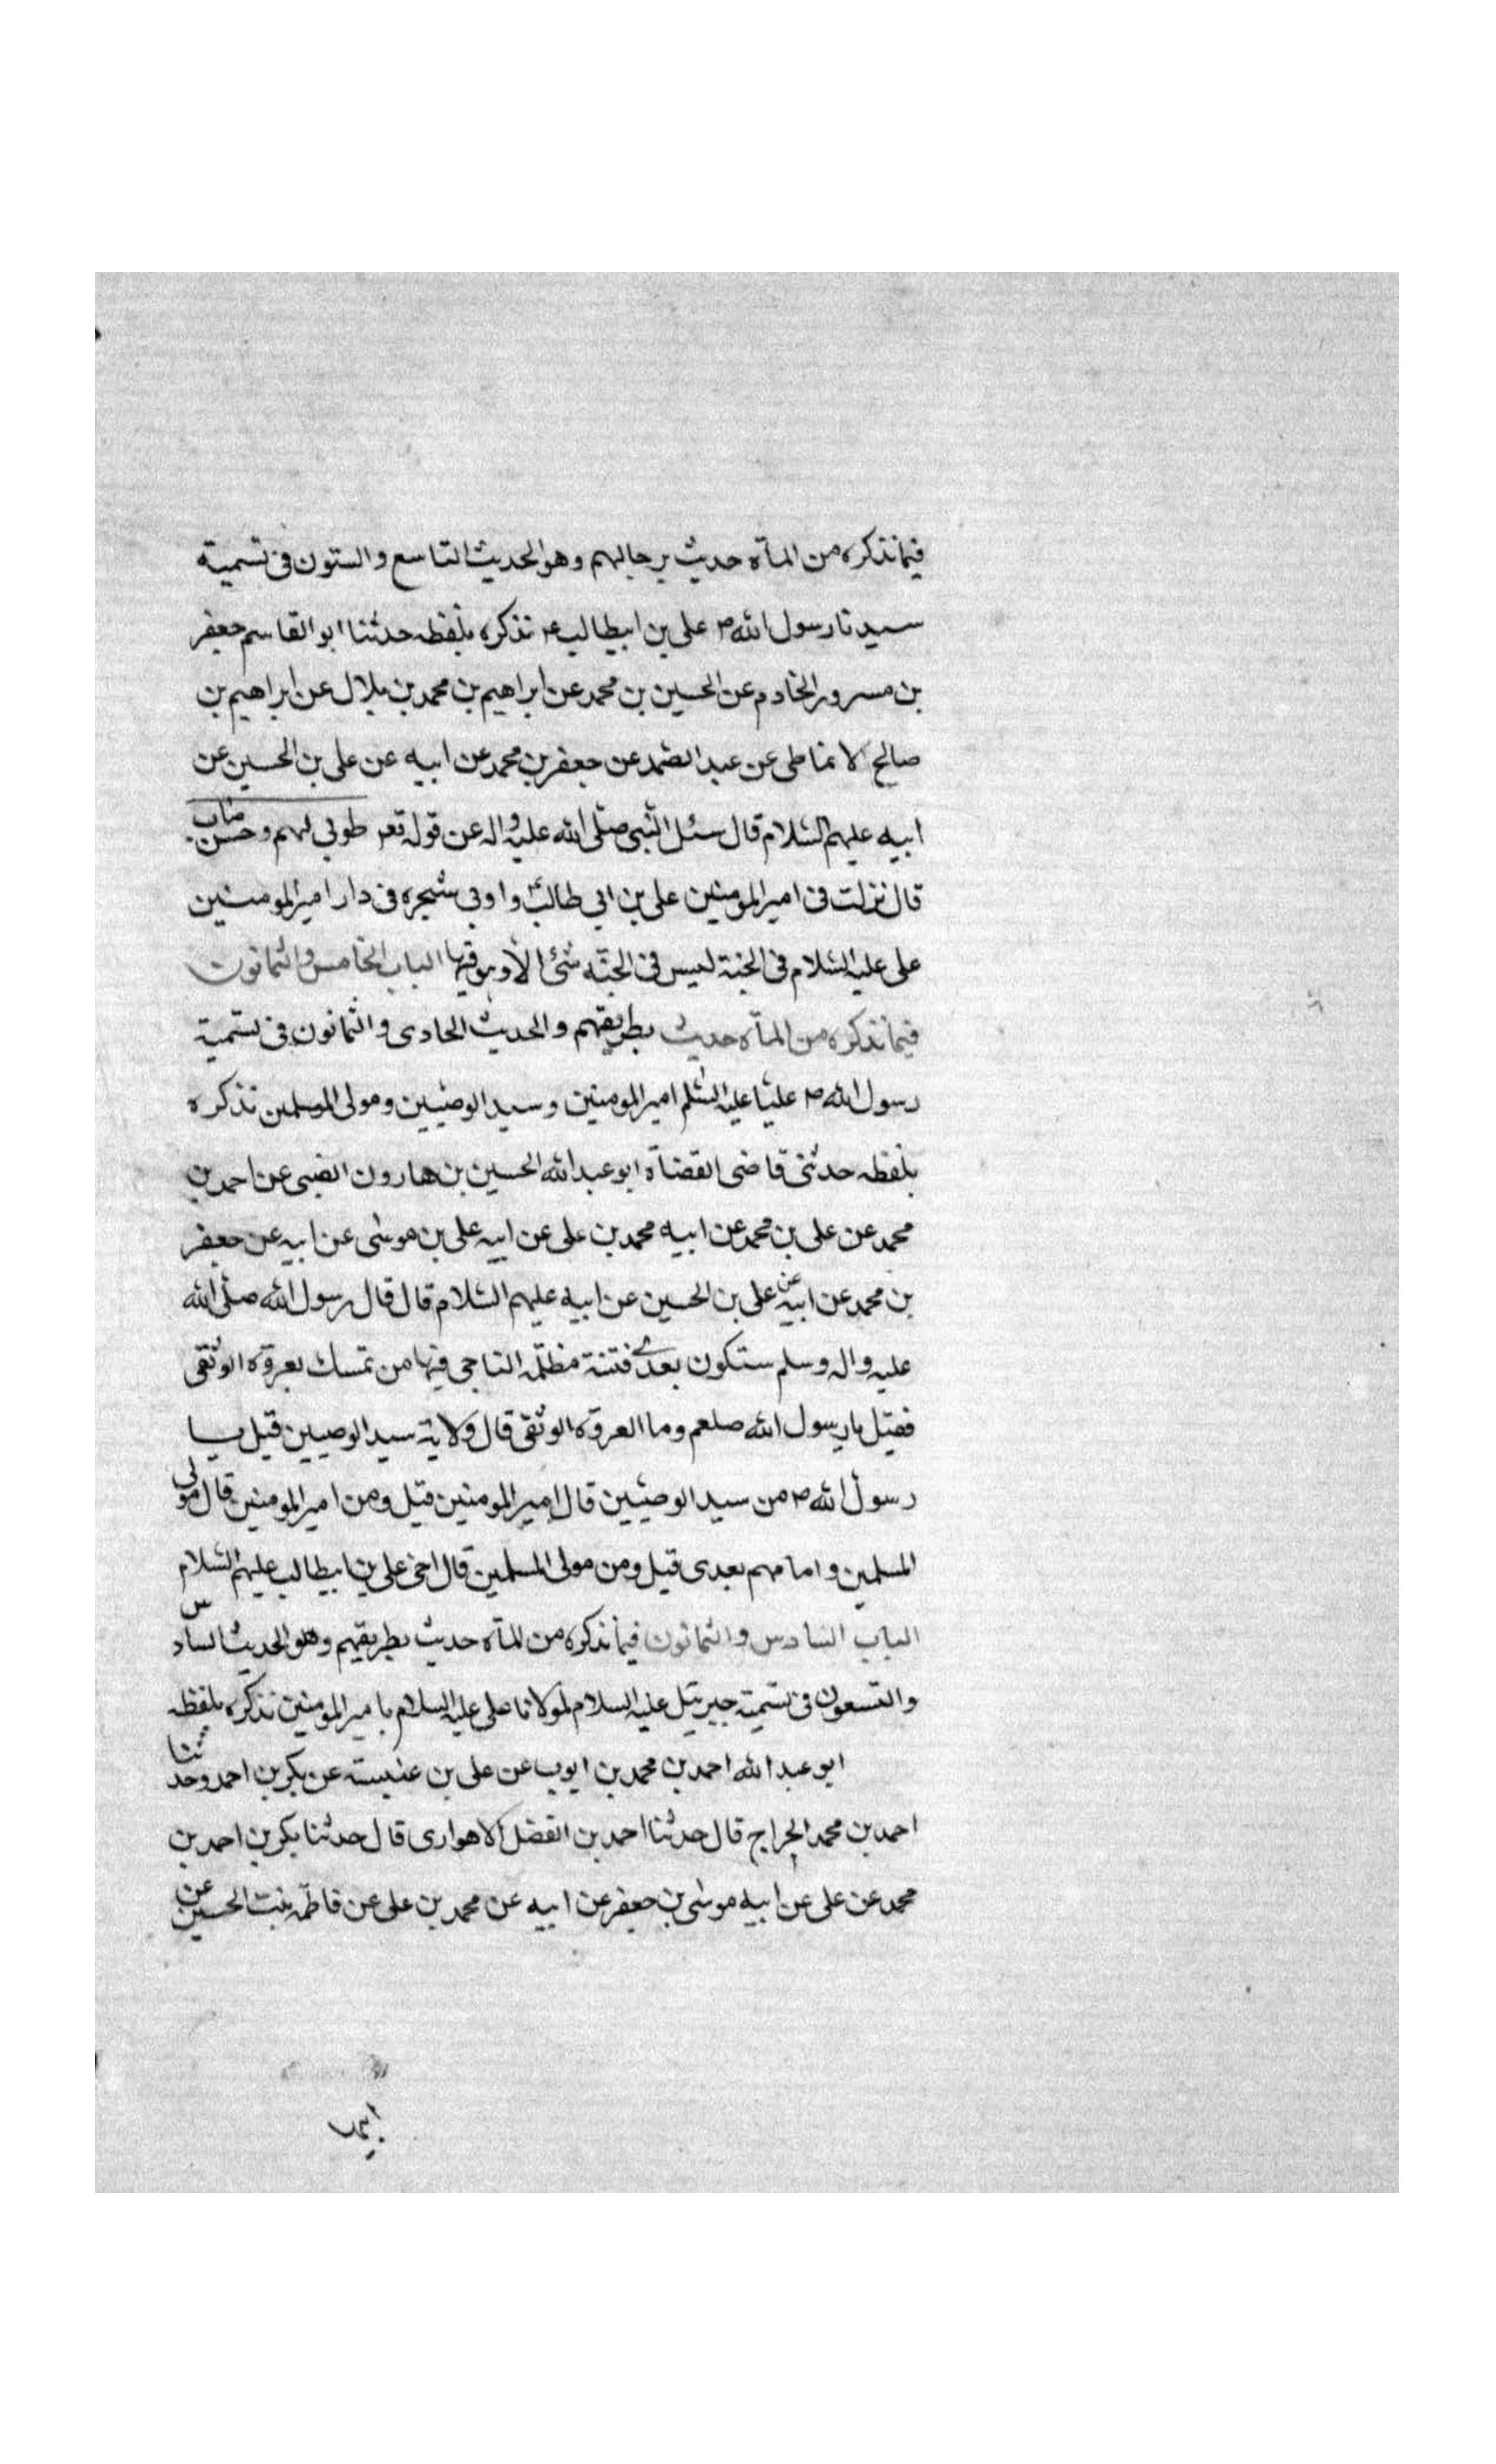 فيما نذكره من المأة حديث برجالهم وهو الحديث التاسع والستون فى تسمية
سيدنا رسول الله ص على بن ابيطالب ع نذكره بلفظه حدثنا ابو القاسم جعفر
بن مسرور الخادم عن الحسين بن محمد عن ابراهيم بن محمد بن بلال عن ابراهيم بن
صالح الانماطى عن عبد الصمد عن جعفر بن محمد عن ابيه عن على بن الحسين عن
ابيه عليهم السّلام قال سئل النّبى صلّى الله عليه واله عن قوله تعم طوبى لهم وحسن ماب
قال نزلت فى امير المومنين على بن ابي طالب ع وا وبى شجره فى دار امير المومنين
على عليه السّلام فى الجنة ليس فى الجنّه شئ الّا وهو فيها الباب الخامس والثمانون
فيما نذكره من المأة حديث بطريقهم والحديث الحادى والثمانون فى تسمية
رسول الله ص عليّا عليه السّلم امير المومنين وسيد الوصيّين ومولى المسلمين نذكره
بلفظه حدثنى قاضى القضاة ابو عبد الله الحسين بن هارون الضبى عن احمد بن
محمد عن على بن محمد عن ابيه محمد بن على عن ابيه على بن موسى عن ابيه عن جعفر
بن محمد عن ابيه عن على بن الحسين عن ابيه عليهم السّلام قال قال رسول الله صلّى الله
عليه واله وسلم ستكون بعدى فتنة مظلّمه الناجى فيها من تمسك بعروة الوثقى
فقيل يا رسول الله صلعم وما العروة الوثقى قال ولاية سيد الوصيين قيل يا
رسول الله ص من سيد الوصيّين قال امير المومنين قيل ومن امير المومنين قال مولى
المسلمين وامامهم بعدى قيل ومن مولى المسلمين قال اخى على بن ابيطالب عليهم السّلام
الباب السادس والثمانون فيما نذكره من المأة حديث بطريقهم وهو الحديث السادس
والتسعون فى تسمية جبرئيل عليه السلام لمولانا على عليه السلام بامير المومنين نذكره بلفظه
ابو عبد الله احمد بن محمد بن ايوب عن على بن عنبسته عن بكر بن احمد وحدثنا
احمد بن محمد الجراح قال حدثنا احمد بن الفضل الاهوارى قال حدثنا بكر بن احمد بن
محمد عن على عن ابيه موسى بن جعفر عن ابيه عن محمد بن على عن فاطمه بنت الحسين عن